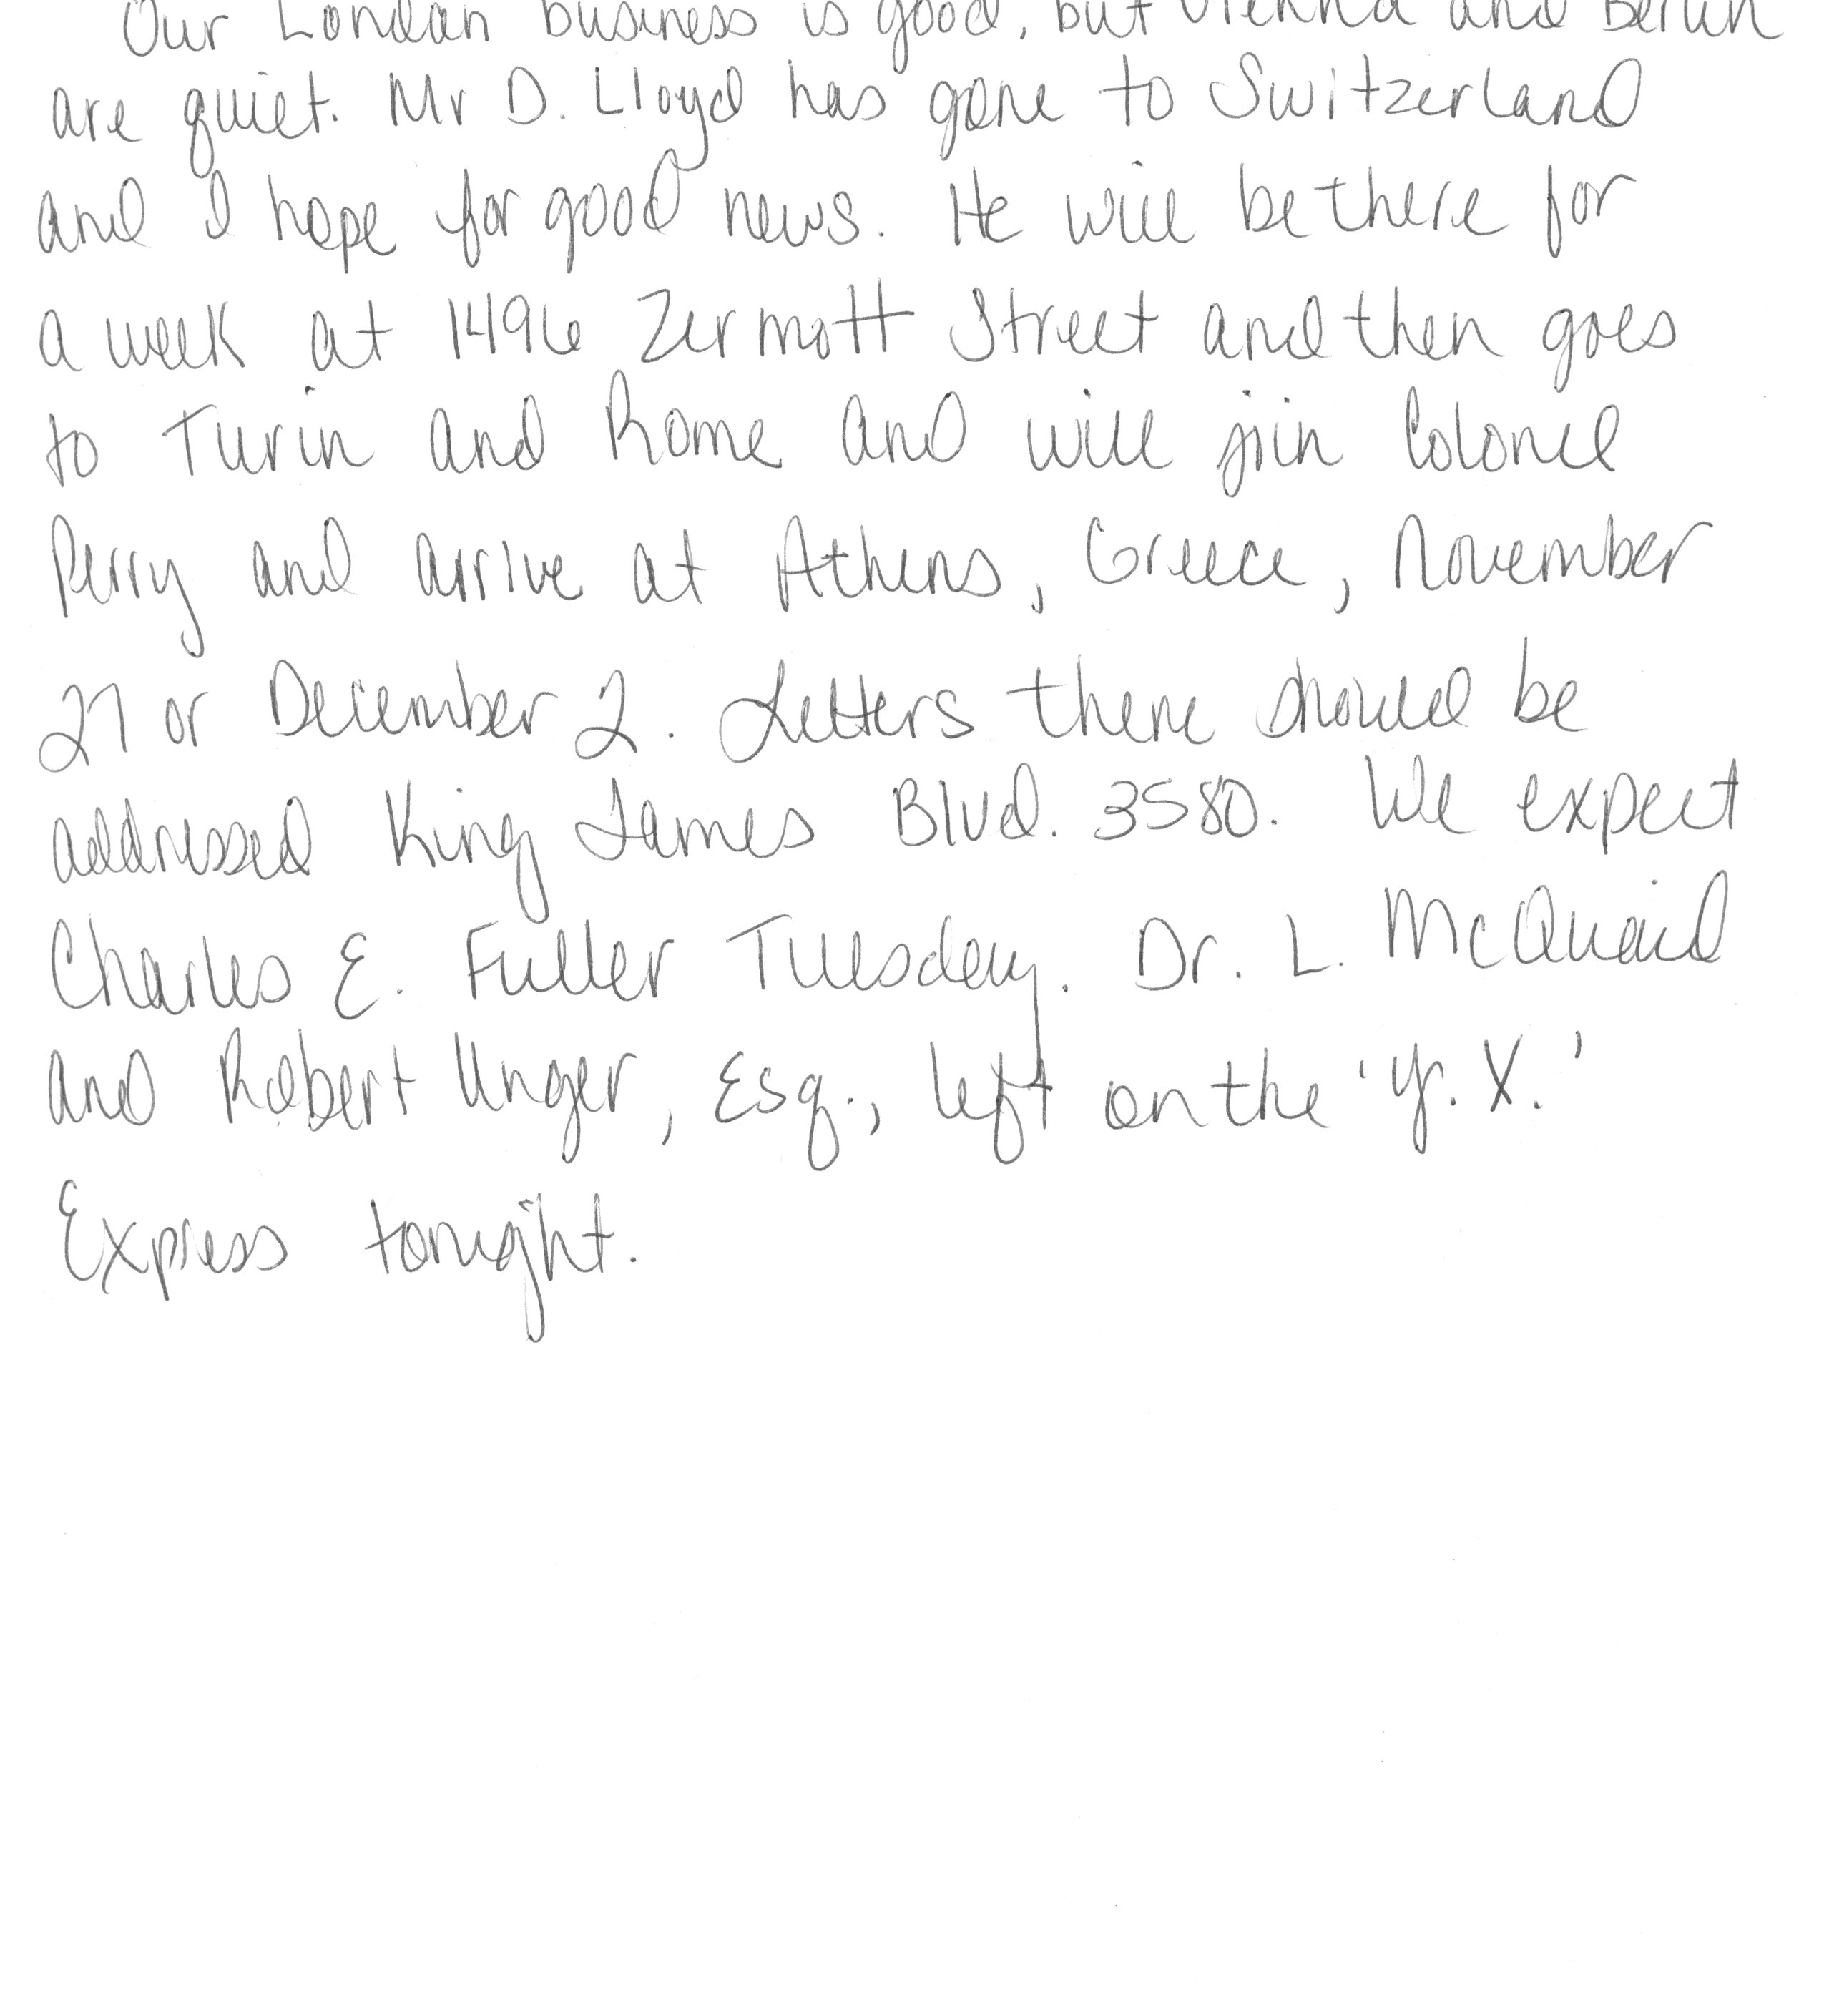 Our London business is good, but Vienna and Berlin
are quiet. Mr D. Lloyd has gone to Switzerland
and I hope for good news. He will be there for
a week at 1496 Zermott Street and then goes
to Turin and Rome and will join Colonel
Perry and arrive at Athens, Greece, November
27 or December 2. Letters there should be
addressed King James Blvd. 3580. We expect
Charles E. Fuller Tuesday. Dr. L. McQuaid
and Robert Unger, Esq., left on the 'Y. X.'
Express tonight.